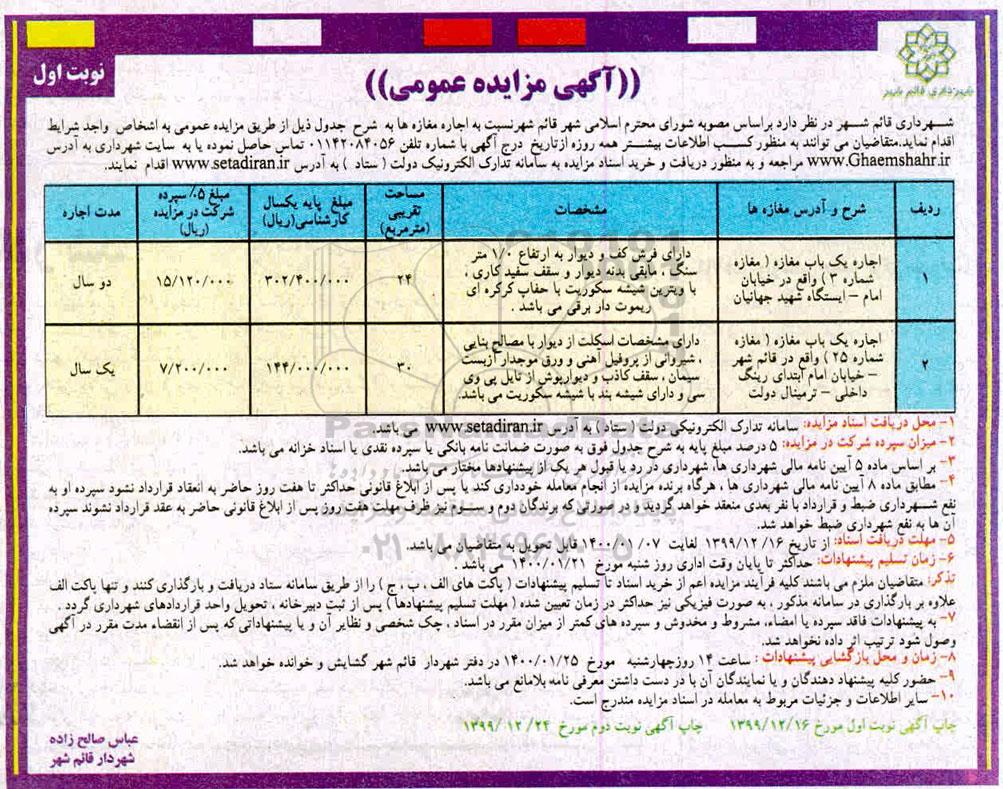 نوبت اول
شهرداری قائم شهر
((آگهی مزایده عمومی))
شهرداری قائم شهر در نظر دارد براساس مصوبه شورای محترم اسلامی شهر قائم شهرنسبت به اجاره مغازه ها به شرح جدول ذیل از طریق مزایده عمومی به اشخاص واجد شرایط
اقدام نماید.متقاضیان می توانند به منظور کسب اطلاعات بیشتر همه روزه ازتاریخ درج آگهی با شماره تلفن ۰۱۱۴۲۰۸۴۰۵۶ تماس حاصل نموده یا به سایت شهرداری به آدرس
www.Ghaemshahr.ir مراجعه و به منظور دریافت و خرید اسناد مزایده به سامانه تدارک الکترونیک دولت ( ستاد ) به آدرس www.setadiran.ir اقدام نمایند.
ردیف | شرح و آدرس مغازه ها | مشخصات | مساحت تقریبی (مترمربع) | مبلغ پایه یکسال کارشناسی(ریال) | مبلغ ۵٪ سپرده شرکت در مزایده (ریال) | مدت اجاره
۱ | اجاره یک باب مغازه ( مغازه شماره ۳ ) واقع در خیابان امام – ایستگاه شهید جهانیان | دارای فرش کف و دیوار به ارتفاع ۱/۰ متر سنگ ، مابقی بدنه دیوار و سقف سفید کاری ، با ویترین شیشه سکوریت با حفاب کرکره ای ریموت دار برقی می باشد . | ۲۴ | ۳۰۲/۴۰۰/۰۰۰ | ۱۵/۱۲۰/۰۰۰ | دو سال
۲ | اجاره یک باب مغازه ( مغازه شماره ۲۵ ) واقع در قائم شهر – خیابان امام ابتدای رینگ داخلی – ترمینال دولت | دارای مشخصات اسکلت از دیوار با مصالح بنایی ، شیروانی از پروفیل آهنی و ورق موجدار آزبست سیمان ، سقف کاذب و دیوارپوش از تایل پی وی سی و دارای شیشه بند با شیشه سکوریت می باشد. | ۳۰ | ۱۴۴/۰۰۰/۰۰۰ | ۷/۲۰۰/۰۰۰ | یک سال
۱- محل دریافت اسناد مزایده: سامانه تدارک الکترونیکی دولت ( ستاد ) به آدرس www.setadiran.ir می باشد.
۲- میزان سپرده شرکت در مزایده: ۵ درصد مبلغ پایه به شرح جدول فوق به صورت ضمانت نامه بانکی یا سپرده نقدی یا اسناد خزانه می باشد.
۳- بر اساس ماده ۵ آیین نامه مالی شهرداری ها، شهرداری در رد یا قبول هر یک از پیشنهادها مختار می باشد.
۴- مطابق ماده ۸ آیین نامه مالی شهرداری ها ، هرگاه برنده مزایده از انجام معامله خودداری کند یا پس از ابلاغ قانونی حداکثر تا هفت روز حاضر به انعقاد قرارداد نشود سپرده او به
نفع شهرداری ضبط و قرارداد با نفر بعدی منعقد خواهد گردید و در صورتی که برندگان دوم و سوم نیز ظرف مهلت هفت روز پس از ابلاغ قانونی حاضر به عقد قرارداد نشوند سپرده
آن ها به نفع شهرداری ضبط خواهد شد.
۵- مهلت دریافت اسناد: از تاریخ ۱۳۹۹/۱۲/۱۶ لغایت ۱۴۰۰/۰۱/۰۷ قابل تحویل به متقاضیان می باشد.
۶- زمان تسلیم پیشنهادات: حداکثر تا پایان وقت اداری روز شنبه مورخ ۱۴۰۰/۰۱/۲۱ می باشد .
تذکر: متقاضیان ملزم می باشند کلیه فرآیند مزایده اعم از خرید اسناد تا تسلیم پیشنهادات ( پاکت های الف ، ب ، ج ) را از طریق سامانه ستاد دریافت و بارگذاری کنند و تنها پاکت الف
علاوه بر بارگذاری در سامانه مذکور ، به صورت فیزیکی نیز حداکثر در زمان تعیین شده ( مهلت تسلیم پیشنهادها ) پس از ثبت دبیرخانه ، تحویل واحد قراردادهای شهرداری گردد .
۷- به پیشنهادات فاقد سپرده یا امضاء، مشروط و مخدوش و سپرده های کمتر از میزان مقرر در اسناد ، چک شخصی و نظایر آن و یا پیشنهاداتی که پس از انقضاء مدت مقرر در آگهی
وصول شود ترتیب اثر داده نخواهد شد.
۸- زمان و محل بازگشایی پیشنهادات : ساعت ۱۴ روزچهارشنبه مورخ ۱۴۰۰/۰۱/۲۵ در دفتر شهردار قائم شهر گشایش و خوانده خواهد شد.
۹- حضور کلیه پیشنهاد دهندگان و یا نمایندگان آن با در دست داشتن معرفی نامه بلامانع می باشد.
۱۰- سایر اطلاعات و جزئیات مربوط به معامله در اسناد مزایده مندرج است.
چاپ آگهی نوبت اول مورخ ۱۳۹۹/۱۲/۱۶ چاپ آگهی نوبت دوم مورخ ۱۳۹۹/۱۲/۲۴
عباس صالح زاده
شهردار قائم شهر
۰۲۱-۸۸۳۴۹۶۷۰-۵